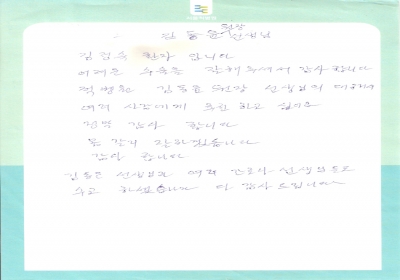 김동윤 원장 선생님
김점숙 환자 입니다
어려운 수술을 잘해주셔서 감사합니다
척병원 김동윤 원장 선생님의 대해서
여러 사람에게 홍보 하고 싶어요
정말 감사 합니다
감사 합니다
김동윤 선생님과 여러 간호사 선생님들도
수고 하셨습니다 다 감사 드립니다